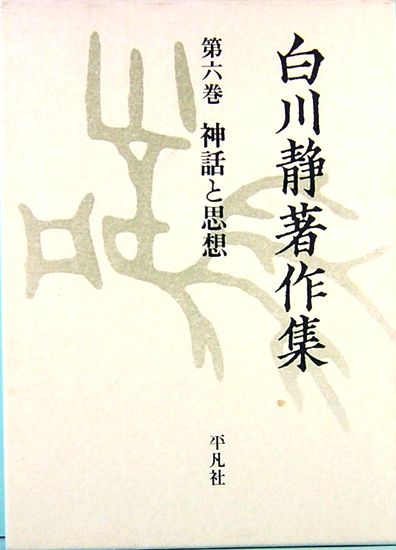 白川静著作集
第六巻 神話と思想
平凡社